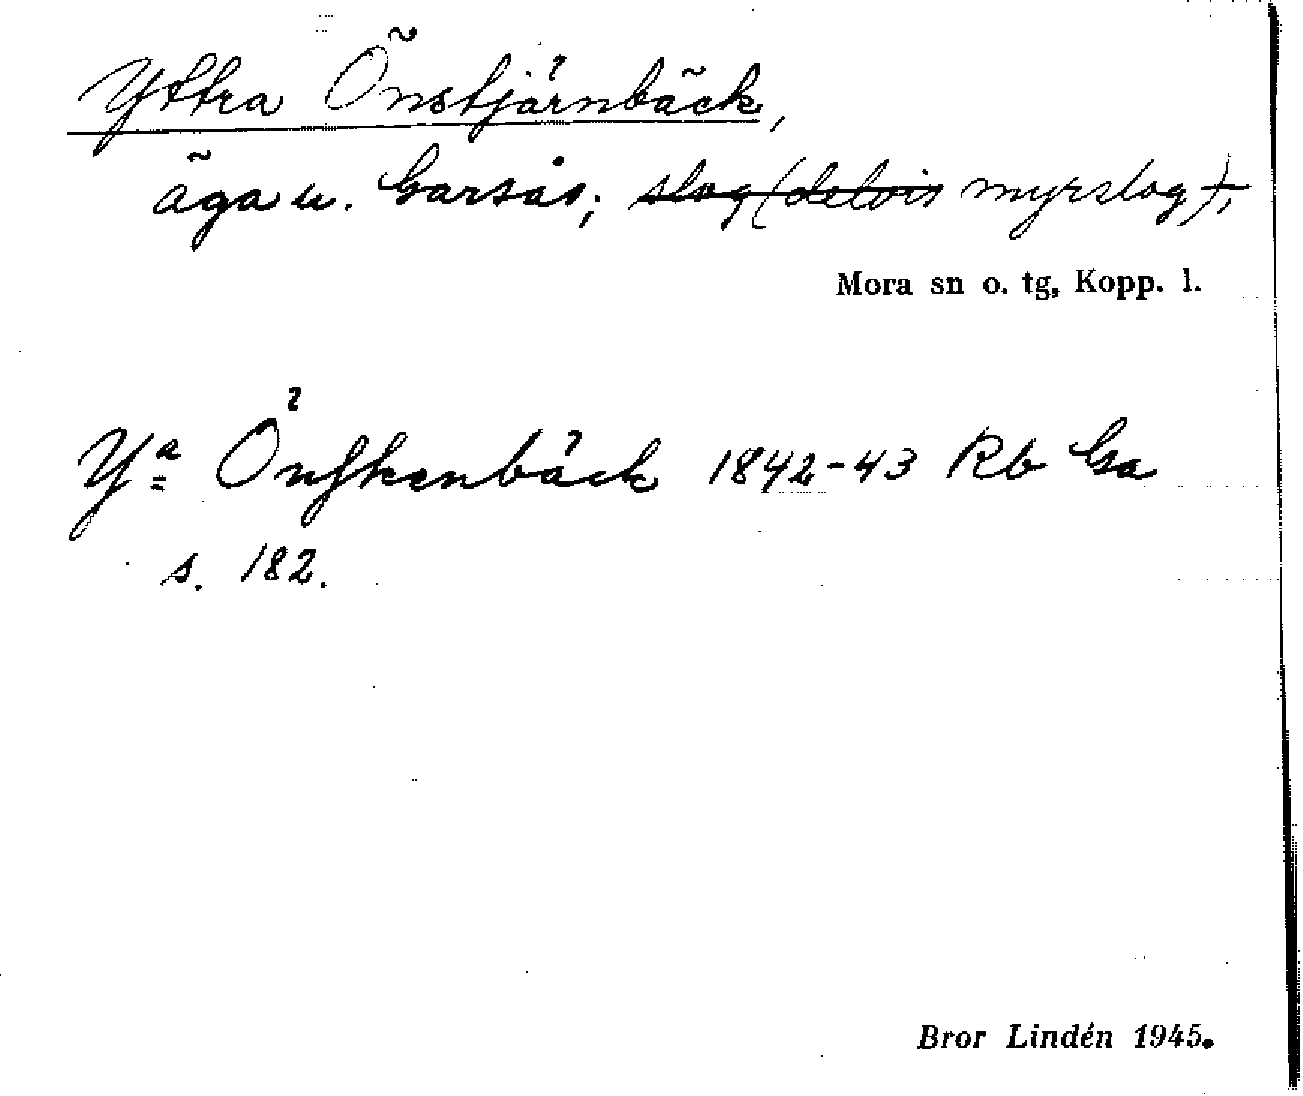 Yttra Önstjärnbäck,
äga u. Garsås; slog (delvis myrslog);
Mora sn o. tg, Kopp. l.
Ya Önskenbäck 1842-43 Rb Ga
s. 182.
Bror Lindén 1945.